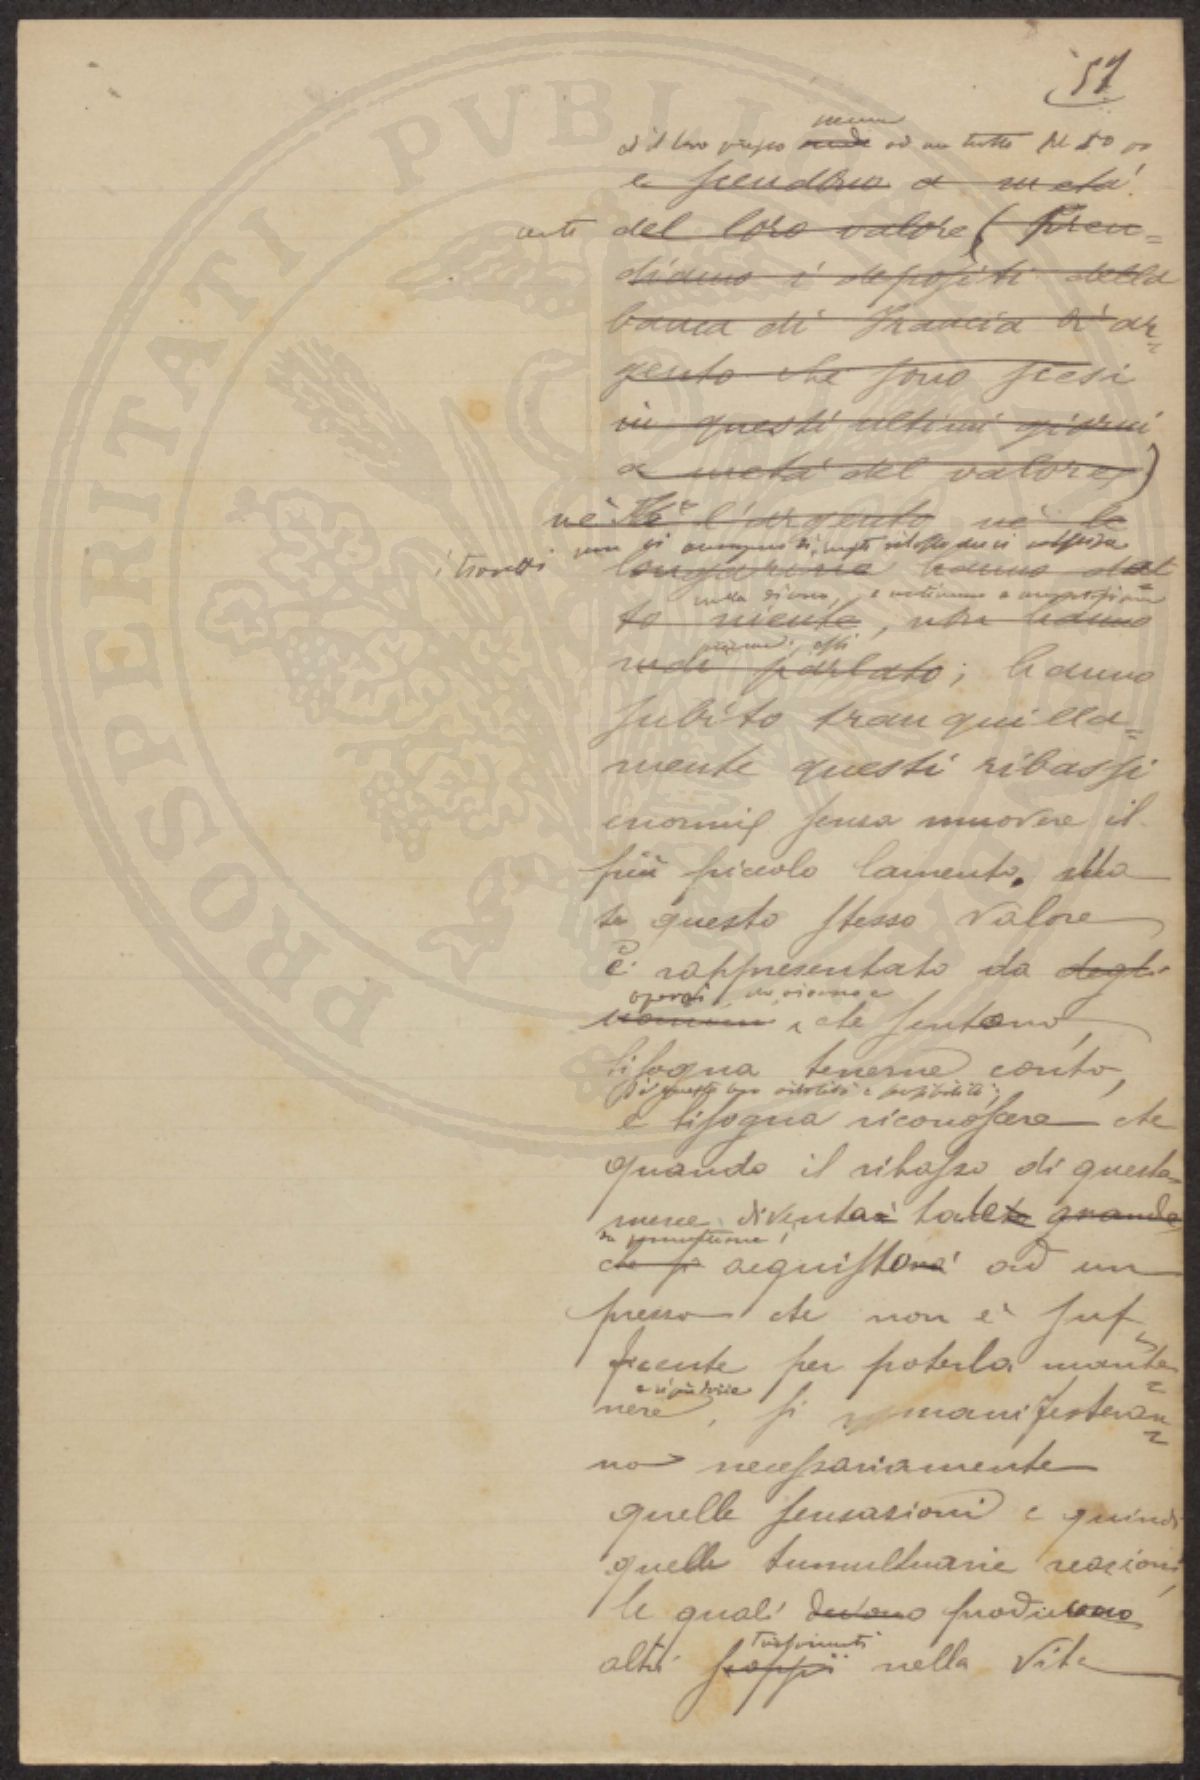 51
ed il loro prezzo vede ad un tratto del 50 %
e scendono a metà
del loro valore (Pren=
diamo i depositi della
banca di Francia di ar=
gento che sono scesi
in questi ultimi giorni
a metà del valore)
nè Nè l'argento nè le
non si
i
hanno dat=
nulla dicono, e
to niente, non hanno
essi
mai parlato; hanno
subito tranquilla=
mente questi ribassi
enormi senza muovere il
più piccolo lamento. Ma
se questo stesso valore
è rappresentato da degli
operai, da
uomini, che sentono,
bisogna tenerne conto,
di questa loro e sensibilità;
e bisogna riconoscere che
quando il ribasso di questa
merce diventa tale grande
da
che si acquista ad un
prezzo che non è suf=
ficente per poterla mante=
e riprodurre
nere, si manifesteran=
no necessariamente
quelle sensazioni e quindi
quelle tumultuarie reazioni,
le quali devono producono
turbamenti
altri scoppii nella vita
PROSPERITATI PVBLICAE